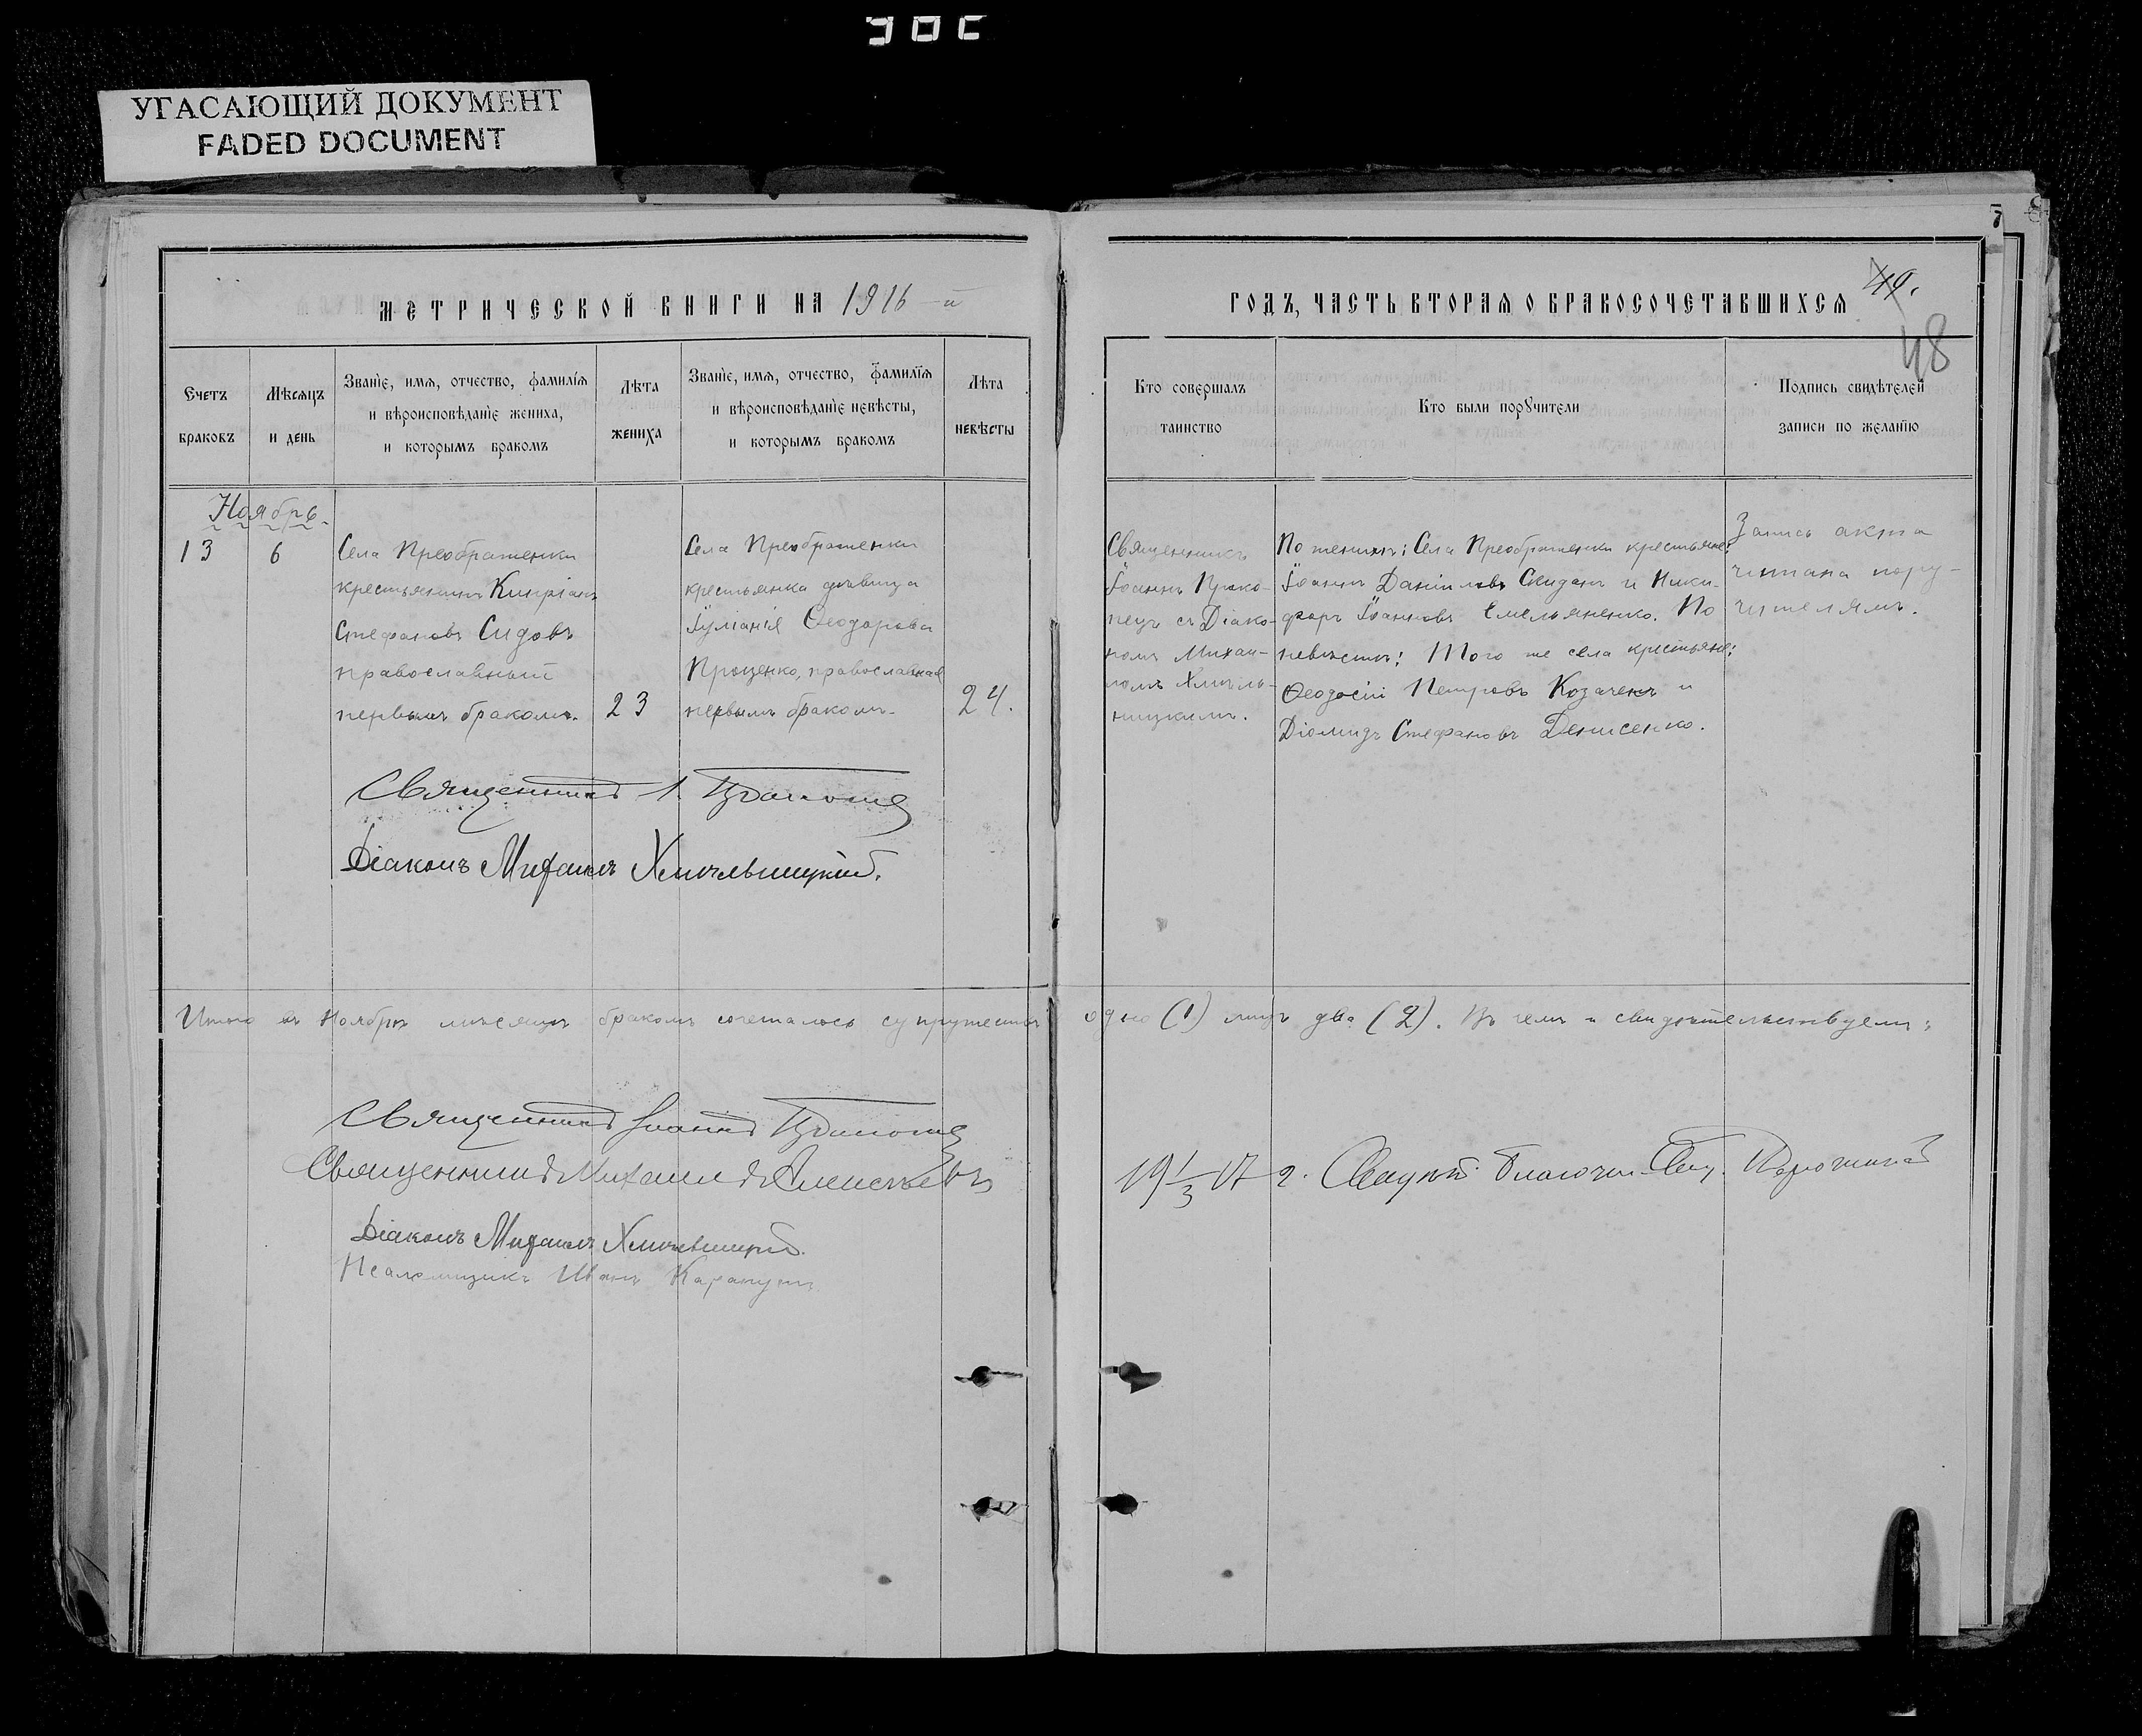 УГАСАЮЩИЙ ДОКУМЕНТ
FADED DOCUMENT
МЕТРИЧЕСКОЙ КНИГИ НА 1916-й
Счетъ браковъ
Мѣсяцъ и день
Званіе, имя, отчество, фамилія
и вѣроисповѣданіе жениха,
и которымъ бракомъ
Лѣта жениха
Званіе, имя, отчество, фамилія
и вѣроисповѣданіе невѣсты,
и которымъ бракомъ
Лѣта невѣсты
Ноябрь.
13
6
Села Преображенки
крестьянинъ Кипріанъ
Стефановъ Сидовъ
православный
первымъ бракомъ.
23
Села Преображенки
крестьянка дѣвица
Іуліанія Ѳеодорова
Проценко, православная
первымъ бракомъ.
24.
Священникъ І.
Діаконъ Михаилъ Хмѣльницкій.
Итого въ Ноябрѣ мѣсяцѣ бракомъ сочеталось супружество
Священникъ Іоаннъ
Священникъ Михаилъ Алексѣевъ
Діаконъ Михаилъ Хмѣльницкій.
Псаломщикъ Иванъ
7
ГОДЪ, ЧАСТЬ ВТОРАЯ О БРАКОСОЧЕТАВШИХСЯ
49.
48
Кто совершалъ
таинство
Кто были поручители
Подпись свидѣтелей
записи по желанію
Священникъ
Іоаннъ Проко-
пецъ съ Діако-
номъ Михаи-
ломъ Хмѣль-
ницкимъ.
По женихѣ: Села Преображенки крестьяне:
Іоаннъ Даніиловъ Скиданъ и Ники-
форъ Іоанновъ Емельяненко. По
невѣстѣ: Того же села крестьяне:
Ѳеодосій Петровъ Козачекъ и
Діомидъ Стефановъ Денисенко.
Запись акта
читана пору-
чителямъ.
одно (1) лицъ два (2). Въ чемъ и свидѣтельствуемъ:
19 1/3 17 г.